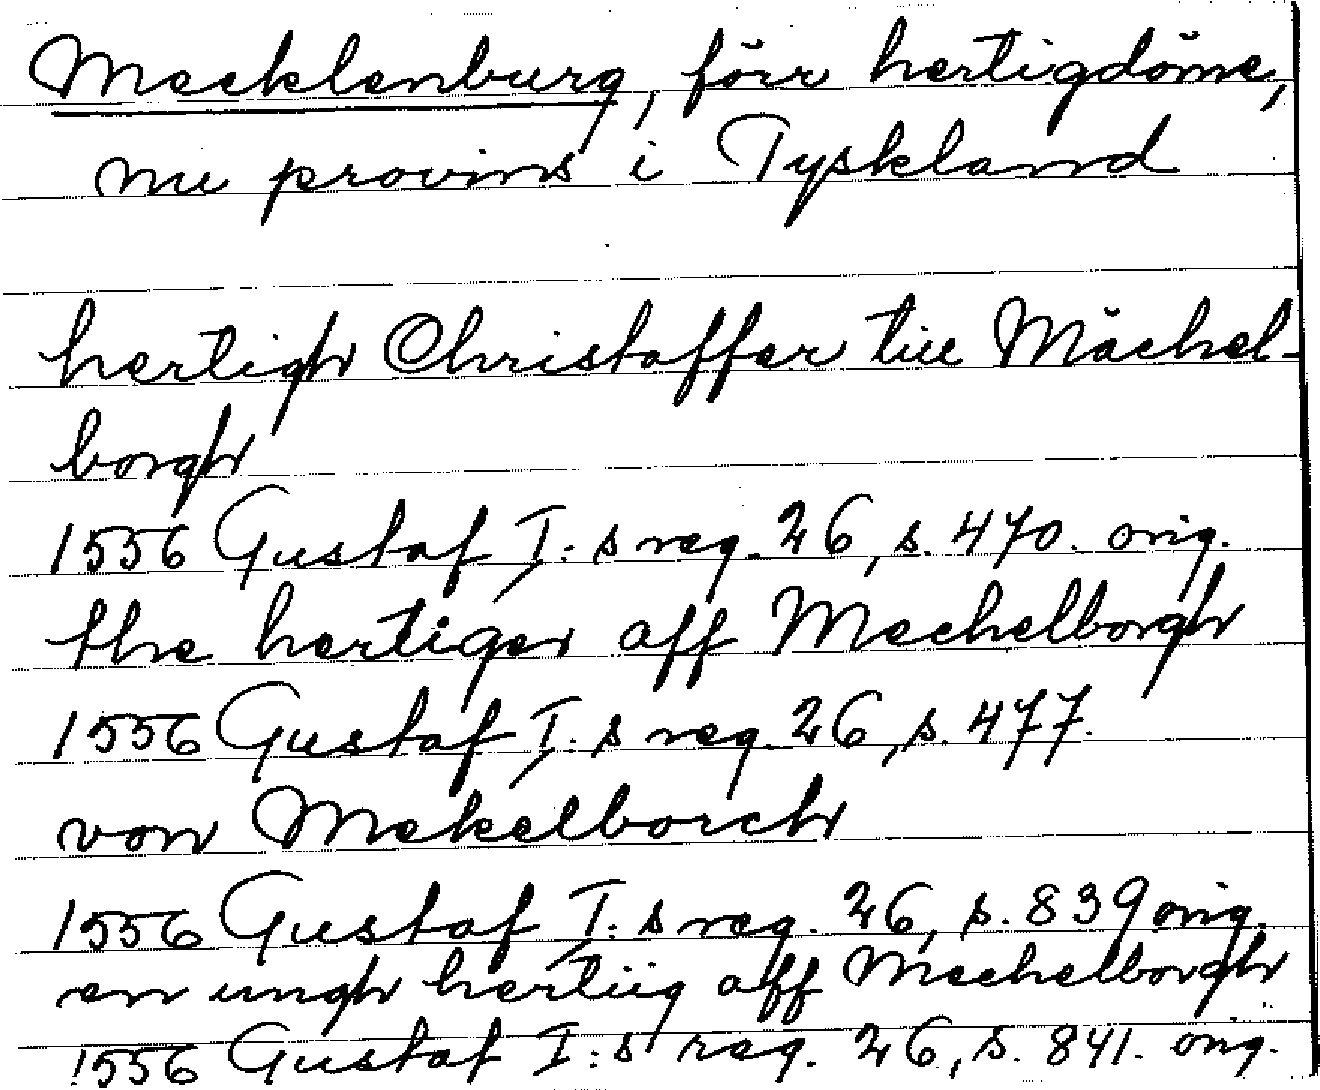 Mecklenburg, förr hertigdöme,
nu provins i Tyskland
hertigh Christoffer till Mächel-
borgh
1556 Gustaf I:s reg. 26, s. 470. orig.
the hertiger aff Mechelborgh
1556 Gustaf I:s reg. 26, s. 477.
von Mekelborch
1556 Gustaf I:s reg. 26, s. 839 orig.
en ungh hertiig aff Mechelborgh
1556 Gustaf I:s reg. 26, s. 841. orig.